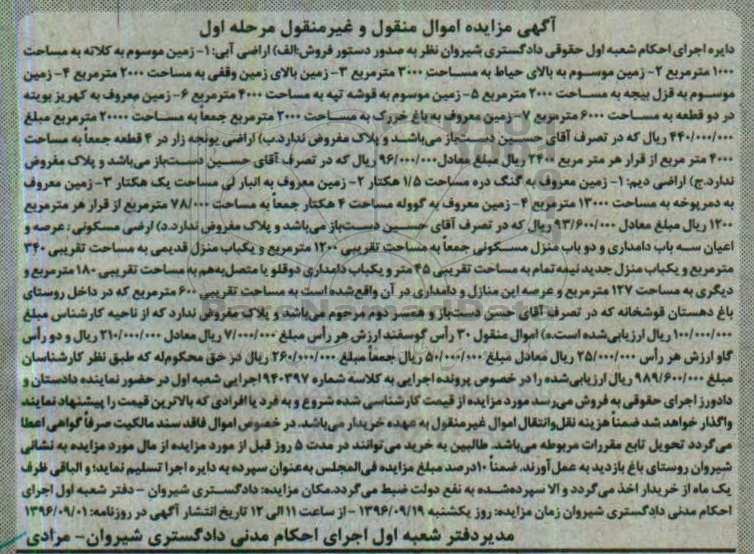 آگهی مزایده اموال منقول و غیرمنقول مرحله اول
دایره اجرای احکام شعبه اول حقوقی دادگستری شیروان نظر به صدور دستور فروش:الف) اراضی آبی: ۱- زمین موسوم به کلاته به مساحت
۱۰۰۰ مترمربع ۲- زمین موسوم به بالای حیاط به مساحت ۳۰۰۰ مترمربع ۳- زمین بالای زمین وقفی به مساحت ۲۰۰۰ مترمربع ۴- زمین
موسوم به قزل بیجه به مساحت ۲۰۰۰ مترمربع ۵- زمین موسوم به قوشه تپه به مساحت ۴۰۰۰ مترمربع ۶- زمین معروف به کهریز بوینه
در دو قطعه به مساحت ۶۰۰۰ مترمربع ۷- زمین معروف به باغ خزرک به مساحت ۲۰۰۰ مترمربع جمعاً به مساحت ۲۰۰۰۰ مترمربع مبلغ
۴۴۰/۰۰۰/۰۰۰ ریال که در تصرف آقای حسین دست‌باز می‌باشد و پلاک مفروض ندارد.ب) اراضی یونجه زار در ۴ قطعه جمعاً به مساحت
۴۰۰۰ متر مربع از قرار هر متر مربع ۲۴۰۰ ریال مبلغ معادل ۹۶/۰۰۰/۰۰۰ ریال که در تصرف آقای حسین دست‌باز می‌باشد و پلاک مفروض
ندارد.ج) اراضی دیم: ۱- زمین معروف به گنگ دره مساحت ۱/۵ هکتار ۲- زمین معروف به انبار لی مساحت یک هکتار ۳- زمین معروف
به دمرپوخه به مساحت ۱۳۰۰۰ مترمربع ۴- زمین معروف به گووله مساحت ۴ هکتار جمعاً به مساحت ۷۸/۰۰۰ مترمربع از قرار هر مترمربع
۱۲۰۰ ریال مبلغ معادل ۹۳/۶۰۰/۰۰۰ ریال که در تصرف آقای حسین دست‌باز می‌باشد و پلاک مفروض ندارد.د) ارضی مسکونی: عرصه و
اعیان سه باب دامداری و دو باب منزل مسکونی جمعاً به مساحت تقریبی ۱۲۰۰ مترمربع و یکباب منزل قدیمی به مساحت تقریبی ۳۴۰
مترمربع و یکباب منزل جدید نیمه تمام به مساحت تقریبی ۴۵ متر و یکباب دامداری دوقلو یا متصل به‌هم به مساحت تقریبی ۱۸۰ مترمربع و
دیگری به مساحت ۱۲۷ مترمربع و عرصه این منازل و دامداری در آن واقع‌شده است به مساحت تقریبی ۶۰۰ مترمربع که در داخل روستای
باغ دهستان قوشخانه که در تصرف آقای حسن دست‌باز و همسر دوم مرحوم می‌باشد و پلاک مفروض ندارد که از ناحیه کارشناس مبلغ
۱۰۰/۰۰۰/۰۰۰ ریال ارزیابی‌شده است.ه) اموال منقول ۳۰ رأس گوسفند ارزش هر رأس مبلغ ۷/۰۰۰/۰۰۰ ریال معادل ۲۱۰/۰۰۰/۰۰۰ ریال و دو رأس
گاو ارزش هر رأس ۲۵/۰۰۰/۰۰۰ ریال معادل مبلغ ۵۰/۰۰۰/۰۰۰ ریال جمعاً مبلغ ۲۶۰/۰۰۰/۰۰۰ ریال در حق محکوم‌له که طبق نظر کارشناسان
مبلغ ۹۸۹/۶۰۰/۰۰۰ ریال ارزیابی‌شده را در خصوص پرونده اجرایی به کلاسه شماره ۹۴۰۳۹۷ اجرایی شعبه اول در حضور نماینده دادستان و
دادورز اجرای حقوقی به فروش می‌رسد مورد مزایده از قیمت کارشناسی شده شروع و به فرد یا افرادی که بالاترین قیمت را پیشنهاد نمایند
واگذار خواهد شد ضمناً هزینه نقل‌وانتقال اموال غیرمنقول به عهده خریدار می‌باشد. در خصوص اموال فاقد سند مالکیت صرفاً گواهی اعطا
می‌گردد تحویل تابع مقررات مربوطه می‌باشد. طالبین به خرید می‌توانند در مدت ۵ روز قبل از مورد مزایده از مال مورد مزایده به نشانی
شیروان روستای باغ بازدید به عمل آورند. ضمناً ۱۰درصد مبلغ مزایده فی‌المجلس به‌عنوان سپرده به دایره اجرا تسلیم نماید؛ و الباقی ظرف
یک ماه از خریدار اخذ می‌گردد و الا سپرده‌شده به نفع دولت ضبط می‌گردد.مکان مزایده: دادگستری شیروان - دفتر شعبه اول اجرای
احکام مدنی دادگستری شیروان زمان مزایده: روز یکشنبه ۱۳۹۶/۰۹/۱۹ - از ساعت ۱۱ الی ۱۲ تاریخ انتشار آگهی در روزنامه: ۱۳۹۶/۰۹/۰۱
مدیردفتر شعبه اول اجرای احکام مدنی دادگستری شیروان- مرادی